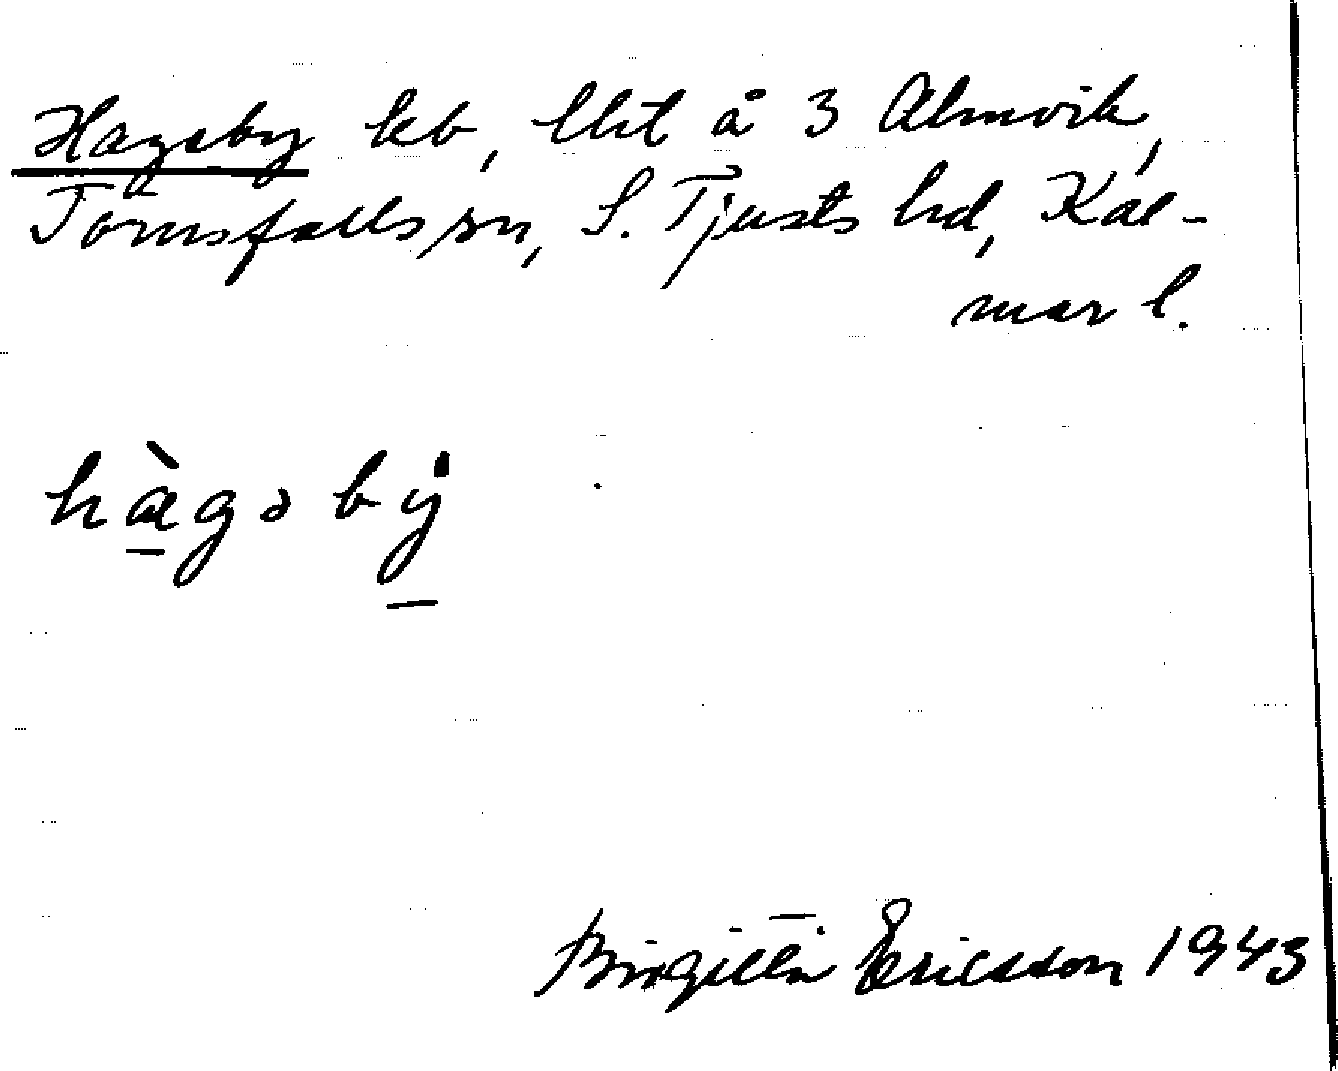 Hagsby kb, lht å 3 Almvik,
Törnsfalls sn, S. Tjusts hd, Kal-
mar l.
hàgsbẏ
Birgitta Ericsson 1943